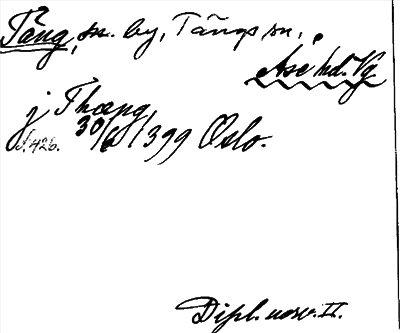 Tång, sn. by, Tångs sn.,
Åse hd. Vg
j Thængh
30/6 1399 Oslo.
s. 426.
Dipl. norv. II.